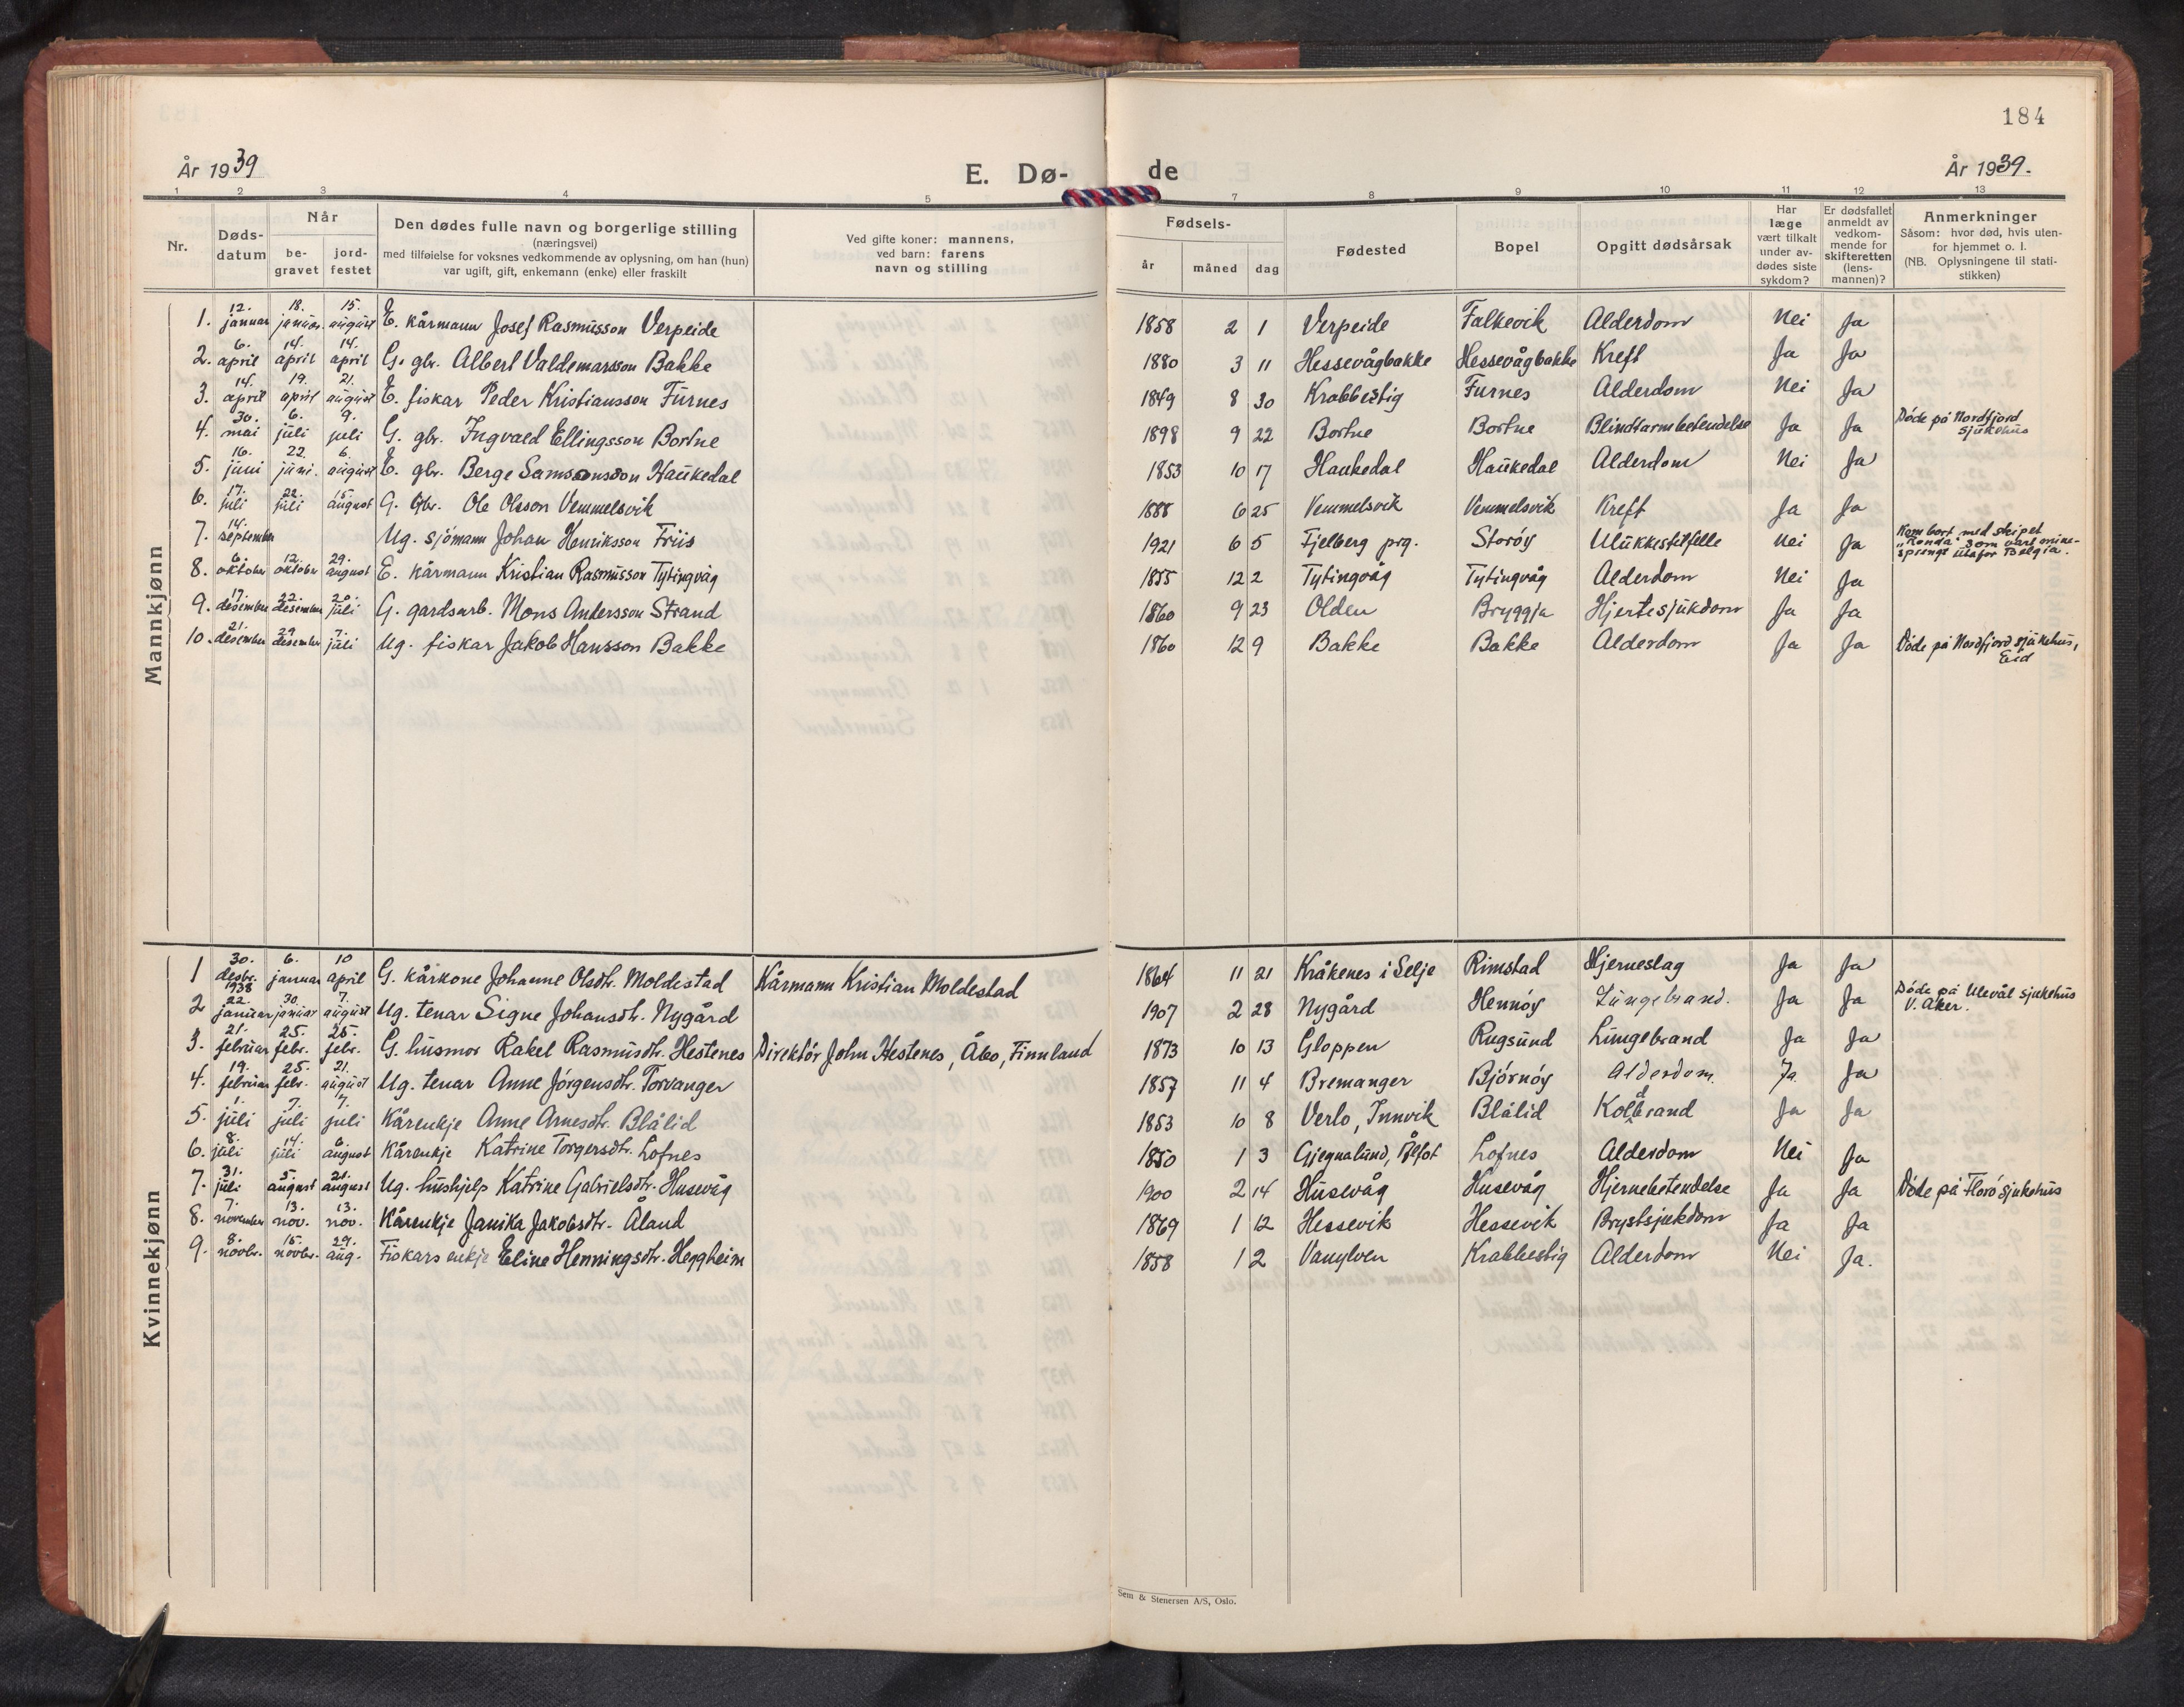 184
År 1939
E. Dø-
de
År 1939.
1 2 3 4 5 7 8 9 10 11 12 13
Nr.
Døds-
datum
Når
be-
gravet
jord-
festet
Den dødes fulle navn og borgerlige stilling
(næringsvei)
med tilføielse for voksnes vedkommende av oplysning, om han (hun)
var ugift, gift, enkemann (enke) eller fraskilt
Ved gifte koner: mannens,
ved barn: farens
navn og stilling
Fødsels-
år måned dag
Fødested
Bopel
Opgitt dødsårsak
Har
læge
vært tilkalt
under av-
dødes siste
sykdom?
Er dødsfallet
anmeldt av
vedkom-
mende for
skifteretten
(lens-
mannen)?
Anmerkninger
Såsom: hvor død, hvis uten-
for hjemmet o. l.
(NB. Oplysningene til stati-
stikken)
Mannkjønn
1. 12. januar 18. januar 15. august E. kårmann Josef Rasmusson Verpeide 1858 2 1 Verpeide Falkevik Alderdom Nei Ja
2. 6. april 14. april 14. april G. gbr. Albert Valdemarsson Bakke 1880 3 11 Hessevågbakke Hessevågbakke Kreft Ja Ja
3. 14. april 19. april 21. august E. fiskar Peder Kristiansson Furnes 1849 8 30 Krabbestig Furnes Alderdom Nei Ja
4. 30. mai 6. juli 9. juli G. gbr. Ingvald Ellingsson Bortne 1898 9 22 Bortne Bortne Blindtarmbetendelse Ja Ja Døde på Nordfjord sjukehus
5. 16. juni 22. juni. 6. august E. gbr. Berge Samsonsson Haukedal 1853 10 17 Haukedal Haukedal Alderdom Nei Ja
6. 17. juli 22. juli 15. august G. Gbr. Ole Olsson Vemmelsvik 1888 6 25 Vemmelsvik Vemmelsvik Kreft Ja Ja
7. 14. september Ug. sjömann Johan Henriksson Friis 1921 6 5 Fjelberg prg. Storøy Ulukkestilfelle Nei Ja Kom bort med skipet "Ronda" som vart mine-sprengt utafor Belgia.
8. 6. oktober 12. oktober 29. august E. kårmann Kristian Rasmusson Tytingvåg 1855 12 2 Tytingvåg Tytingvåg Alderdom Nei Ja
9. 17. desember 22. desember 20. juli G. gardsarb. Mons Andersson Strand 1860 9 23 Olden Bryggja Hjertesjukdom Ja Ja
10. 21. desember 29. desember 7. juli Ug. fiskar Jakob Hansson Bakke 1860 12 9 Bakke Bakke Alderdom Ja Ja Døde på Nordfjord sjukehus, Eid
Kvinnekjønn
1 30. desbr. 1938 6. januar 10 april G. kårkone Johanne Olsdtr. Moldestad Kårmann Kristian Moldestad 1864 11 21 Kråkenes i Selje Rimstad Hjerneslag Ja Ja
2 22. januar 30. januar 7. august Ug. tenar Signe Johansdt. Nygård 1907 2 28 Nygård Hennøy Lungebrand. Ja Ja Døde på Ulevål sjukehus V. Aker.
3. 21. februar 25. febr. 25. febr. G. husmor Rakel Rasmusdtr. Hestenes Direktör John Hestenes, Åbo, Finnland 1873 10 13 Gloppen Rugsund Lungebrand Ja Ja
4. 19. februar 25. febr. 21. august Ug. tenar Anne Jörgensdtr. Torvanger 1857 11 4 Bremanger Björnöy Alderdom. Ja Ja
5. 1. juli 7. juli 7. juli Kårenkje Anne Arnesdtr. Blålid 1853 10 8 Verlo, Innvik Blålid Koldbrand Ja Ja
6. 8. juli 14. juli 6. august Kårenkje Katrine Torgersdtr. Lofnes 1850 1 3 Gjegnalund, Ålfot Lofnes Alderdom Nei Ja
7. 31. juli 5. august 21. august Ug. hushjelp Katrine Gabrielsdtr. Husevåg 1900 2 14 Husevåg Husevåg Hjernebetendelse Ja Ja Döde på Florö sjukehus
8. 7. november 13. nov. 13. nov. Kårenkje Janika Jakobsdtr. Åland 1869 1 12 Hessevik Hessevik Brystsjukdom Ja Ja
9. 8. novbr. 15. novbr. 29. aug. Fiskars enkje Eline Henningsdtr. Heggheim 1858 1 2 Vanylven Krabbestig Alderdom Nei Ja.
Sem & Stenersen A/S, Oslo.